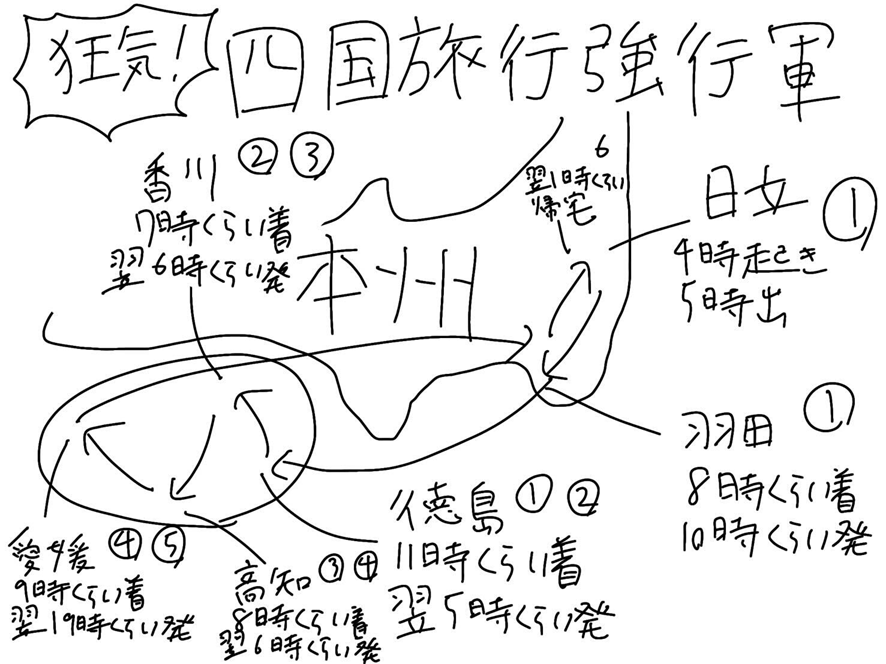 狂気!
四国旅行強行軍
香川 ② ③
7時くらい着
翌6時くらい発
本州
6
翌1時くらい
帰宅
日立 ①
4時起き
5時出
羽田 ①
8時くらい着
10時くらい発
徳島 ① ②
11時くらい着
翌5時くらい発
高知 ③ ④
8時くらい着
翌6時くらい発
愛媛 ④ ⑤
9時くらい着
翌19時くらい発